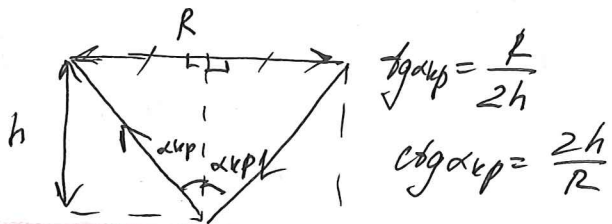 R
h
αкр αкр
tgαкр = R/2h
ctgαкр = 2h/R